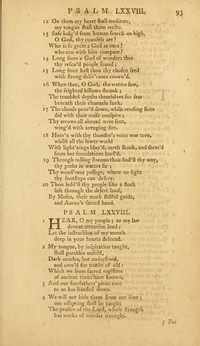 PSALM LXXVIII. 93
12 On them my heart shall meditate,
my tongue shall them recite.
13 Safe lodg'd from human search on high,
O God, thy counsels are!
Who is so great a God as ours?
who can with him compare?
14 Long since a God of wonders thee
thy rescu'd people found;
15 Long since hast thou thy chosen seed
with strong deliv'rance crown'd.
16 When thee, O God, the waters saw,
the frighted billows shrunk;
The troubled depths themselves for fear
beneath their channels sunk:
17 The clouds pour'd down, while rending skies
did with their noise conspire;
Thy arrows all abroad were sent,
wing'd with avenging fire.
18 Heav'n with thy thunder's voice was torn,
whilst all the lower world
With light'nings blaz'd, earth shook, and seem'd
from her foundations hurl'd.
19 Through rolling streams thou find'st thy way,
thy paths in waters lie;
Thy wond'rous passage, where no sight
thy footsteps can descry.
20 Thou ledd'st thy people like a flock
safe through the desert land,
By Moses, their meek skilful guide,
and Aaron's sacred hand.
PSALM LXXVIII.
1 HEAR, O my people; to my law
devout attention lend;
Let the instruction of my mouth
deep in your hearts descend.
2 My tongue, by inspiration taught,
shall parables unfold,
Dark oracles, but understood,
and own'd for truths of old:
3 Which we from sacred registers
of ancient times have known,
And our forefathers' pious care
to us has handed down.
4 We will not hide them from our sons;
our offspring shall be taught
The praises of the Lord, whose strength
has works of wonder wrought.
5 For